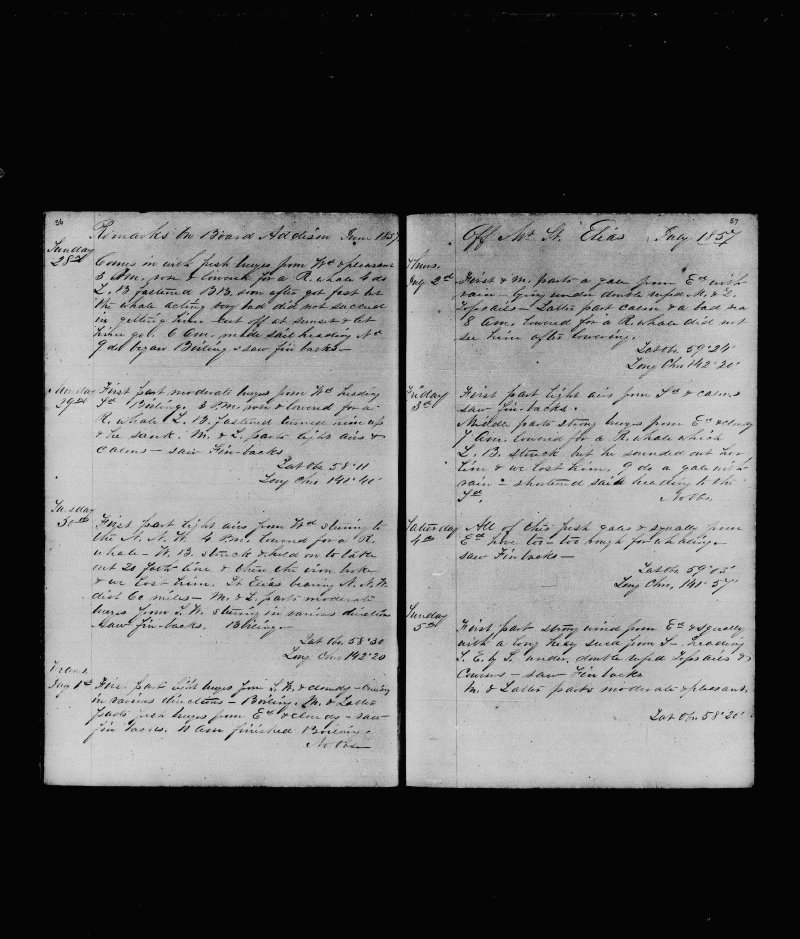 56
Remarks On Board Addison June 1857
Sunday
28th
Comes in with fresh breezes from Wd & pleasant
3 P.M. saw & lowered for a R. whale 4 do
L. B. fastened B.B. soon after got fast but
the whale acting very bad did not succeed
in getting him - cut off at sunset & let
him go. 6 A.m. made sail heading Nd
9 do began Boiling - saw fin backs -
Monday
29th
First part moderate breezes from Wd heading
Boiling. 3 P.M. saw & lowered for a
R. whale L. B. fastened turned him up
& he sank. M. & L. parts light airs &
calms - saw Finbacks
Lat Obs 58°11
Long Chr 141°40
Tuesday
30th
First part light airs from Wd steering to
the N. N. W. 4 P.M. lowered for a R.
whale - W. B. struck & held on to
out line & then the iron broke
& we lost him. St Elias bearing N.N.W.
dist 60 miles - M. & L. parts moderate
breezes from S.W. steering in various direction
Saw fin backs. Boiling -
Lat Obs 58°30
Long Chr 142°20
July 1st
First part light breezes from S.W. & cloudy -
in various directions - Boiling. M. & Latter
parts fresh breezes from Ed & cloudy - saw
fin backs. 11 A.m finished Boiling.
No Obs
57
Off Mt. St. Elias July 1857
Thurs.
July 2nd
First & M. parts a gale from Ed with
rain - lying under double reefed M. & F.
Topsails - Latter part calm & a bad sea
8 A.m. lowered for a R. whale did not
see him after lowering.
Lat Obs 59°24'
Long Chr 142°20'
Friday
3rd
First part light airs from Sd & calms
saw fin-backs.
Middle parts strong breezes from Ed & cloudy
7 A.m. lowered for a R. whale which
L. B. struck but he sounded out her
line & we lost him. 9 do a gale with
rain - shortened sail heading to the
Sd.
No Obs.
Saturday
4th
All of this fresh gales & squally from
Ed hove too - too rough for whaling -
saw Finbacks -
Lat Obs 59°05'
Long Chr. 141°57'
Sunday
5th
First part strong wind from Ed & squally
with a long heavy swell from S - heading
S. E. by S. under double reefed Topsails &
Courses - saw Finbacks
M. & Latter parts moderate & pleasant.
Lat Obs 58°20'